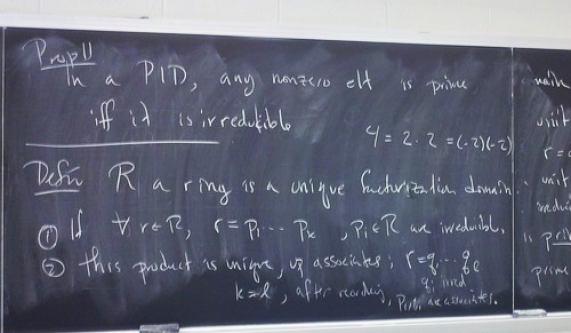 Prop 11
In a PID, any nonzero elt is prime
iff it is irreducible
4 = 2 · 2 = (-2)(-2)
Defn R a ring is a unique factorization domain
① If ∀ r ∈ R, r = p₁ ... pₖ , pᵢ ∈ R are irreducible.
② this product is unique, up associates; r = q₁ ... qₗ
qᵢ irred
k = l, after reordering, pᵢ, qᵢ are associates.
unit
r =
unit
is pri
prime